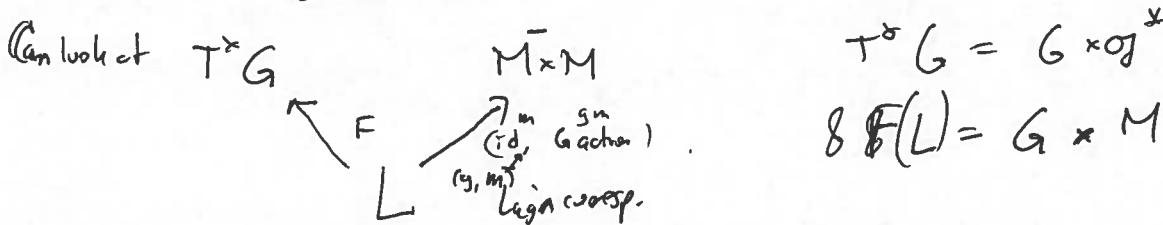 Can look at T*G M⁻×M T*G = G × 𝔤*
F m gm
(id, G action). & F(L) = G × M
(g, m)
L Lagn corresp.